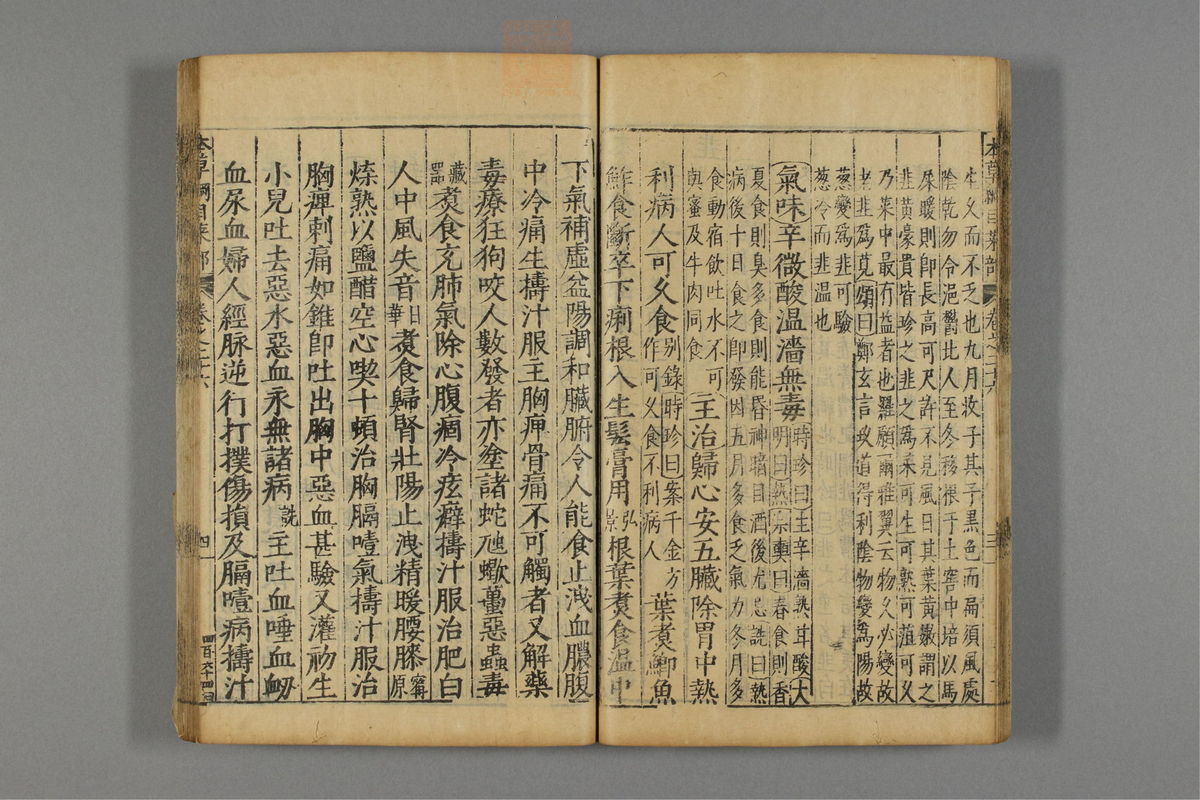 本草綱目菜部 卷之二十六 三
生久而不乏也九月收子其子黑色而扁須風處
陰乾勿令浥鬱北人至冬移根于土窖中培以馬
屎暖則即長高可尺許不見風日其葉黃嫩謂之
韭黃豪貴皆珍之韭之爲菜可生可熟可菹可久
乃菜中最有益者也羅願爾雅翼云物久必變故
老韭爲莧頌曰鄭玄言政道得利陰物變爲陽故
葱變爲韭可驗
葱冷而韭温也
氣味辛微酸温濇無毒時珍曰生辛濇熟甘酸大明曰熱宗奭曰春食則香
夏食則臭多食則能昏神暗目酒後尤忌詵曰熱
病後十日食之即發困五月多食乏氣力冬月多
食動宿飲吐水不可
與蜜及牛肉同食主治歸心安五臟除胃中熱
利病人可久食别錄時珍曰案千金方作可久食不利病人葉煑鯽魚
鮓食斷卒下痢根入生髮膏用弘景根葉煑食温中
下氣補虛益陽調和臟腑令人能食止洩血膿腹
中冷痛生擣汁服主胸痹骨痛不可觸者又解藥
毒療狂狗咬人數發者亦塗諸蛇虺蠍蠆惡蟲毒
藏器煑食充肺氣除心腹痼冷痃癖擣汁服治肥白
人中風失音日華煑食歸腎壯陽止洩精暖腰膝甯原
煠熟以鹽醋空心喫十頓治胸膈噎氣擣汁服治
胸痹刺痛如錐即吐出胸中惡血甚驗又灌初生
小兒吐去惡水惡血永無諸病詵主吐血唾血衂
血尿血婦人經脉逆行打撲傷損及膈噎病擣汁
本草綱目菜部 卷之二十六 四